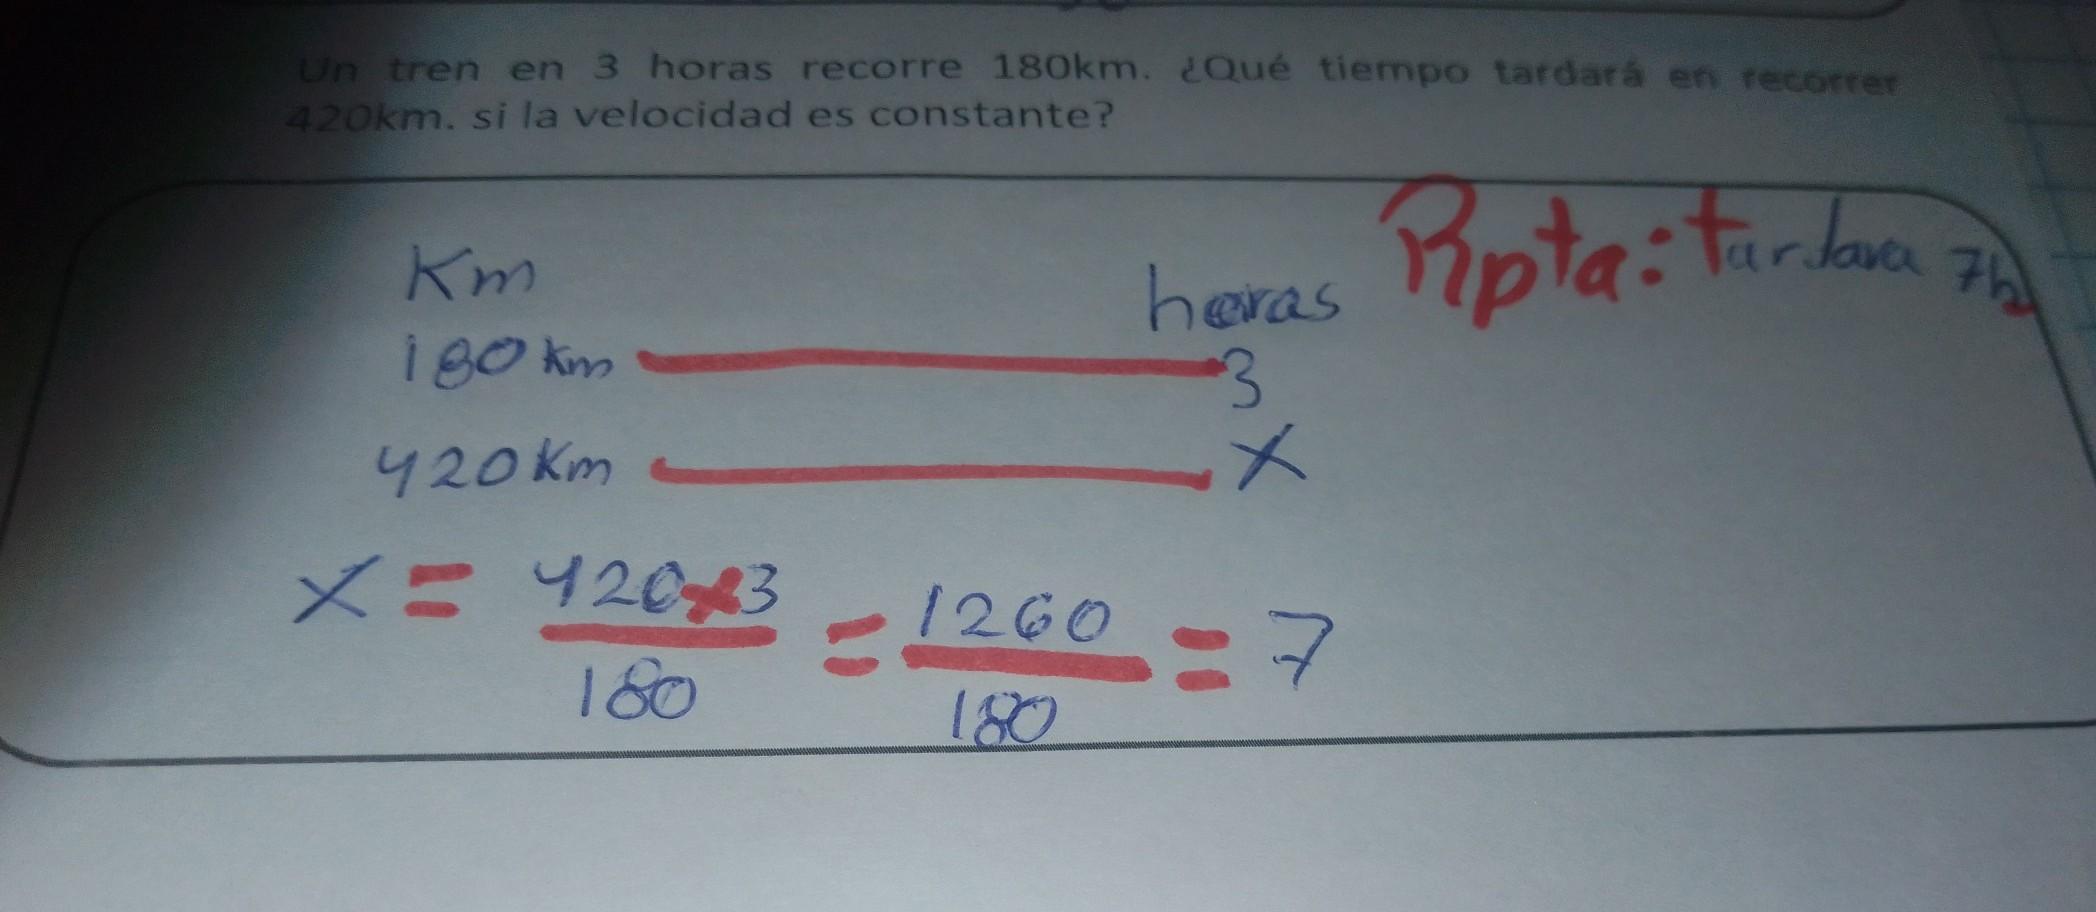 Un tren en 3 horas recorre 180km. ¿Qué tiempo tardará en recorrer
420km. si la velocidad es constante?
Km horas Rpta: tardara 7h
180 km 3
420 Km X
X = 420x3 = 1260 = 7
180 180